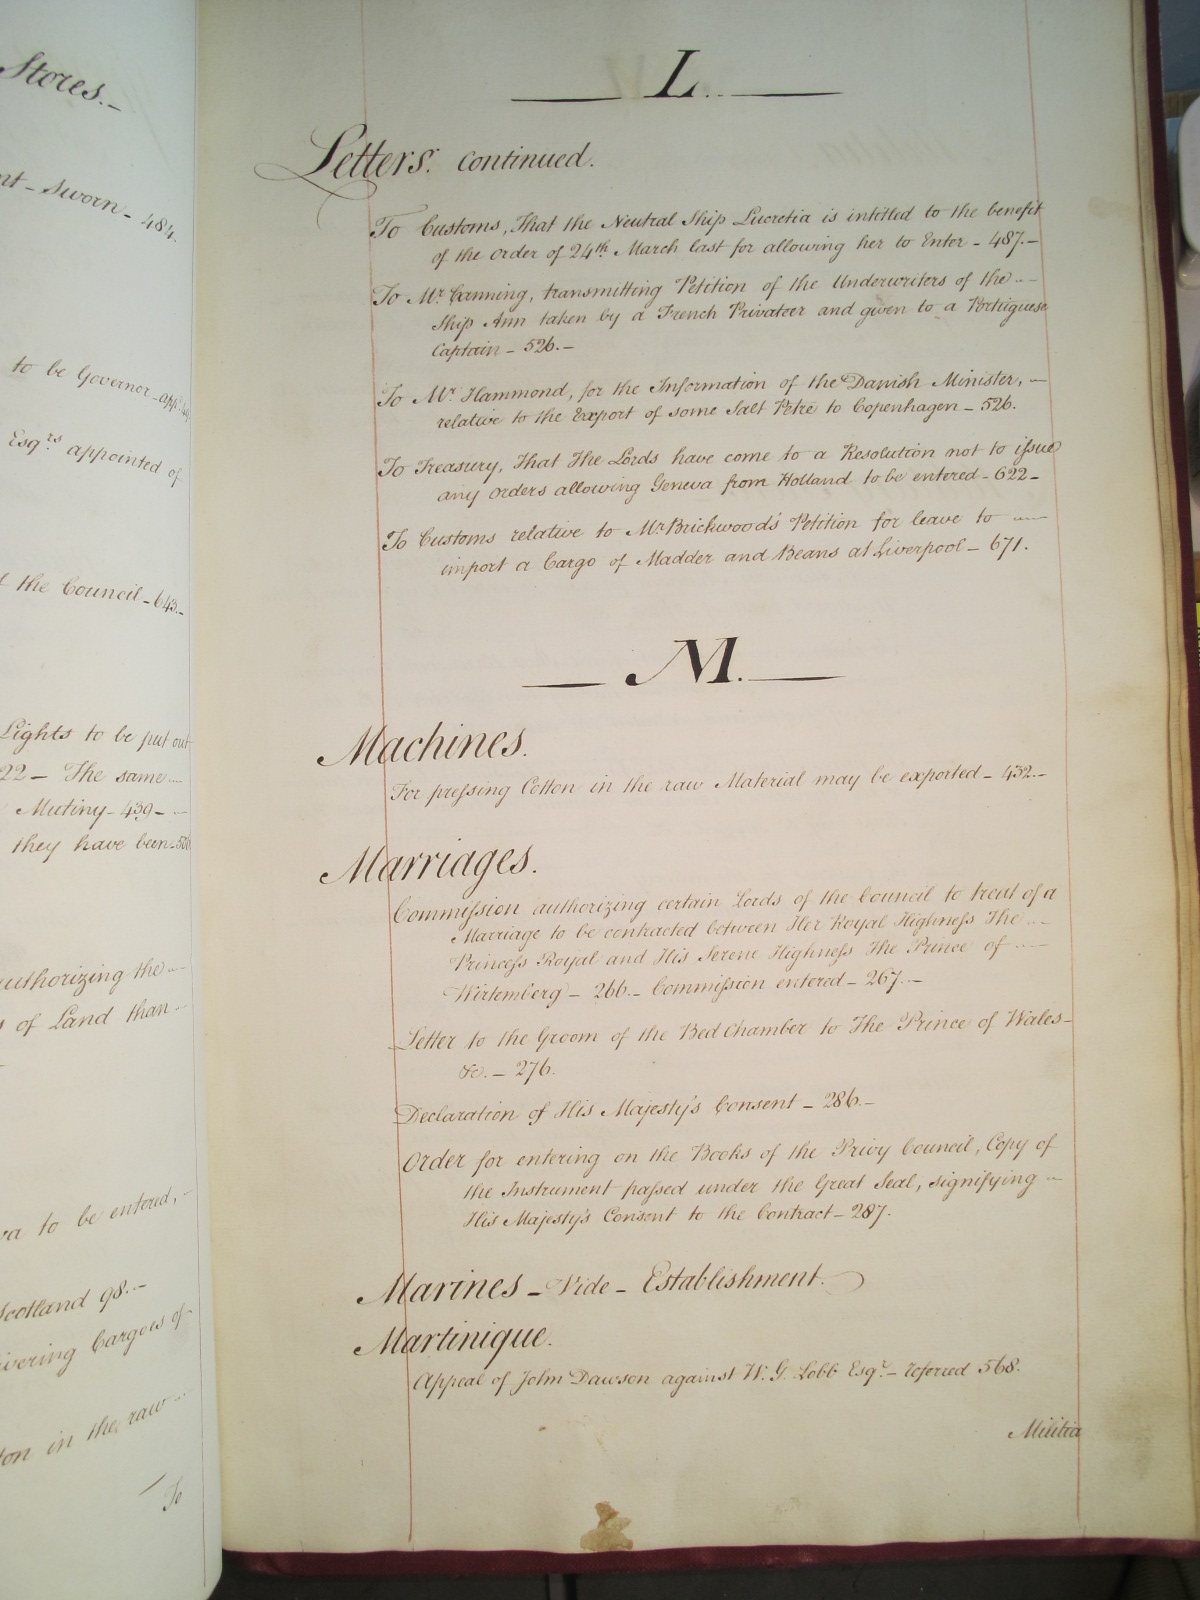 Stores.
nt - Sworn - 484.
to be Governor - app.
Esqrs. appointed of
the Council - 643.
Lights to be put out
22 - The same
Mutiny - 439 -
they have been
authorizing the
of Land than
va to be entered, -
Scotland 98. -
ivering Cargoes of
ton in the raw
To
L.
Letters. continued.
To Customs, That the Neutral Ship Lucretia is intitled to the benefit
of the order of 24th. March last for allowing her to Enter - 487. -
To Mr. Canning, transmitting Petition of the Underwriters of the
Ship Ann taken by a French Privateer and given to a Portuguese
Captain - 526. -
To Mr. Hammond, for the Information of the Danish Minister, -
relative to the Export of some Salt Petre to Copenhagen - 526.
To Treasury, That The Lords have come to a Resolution not to issue
any orders allowing Geneva from Holland to be entered - 622 -
To Customs relative to Mr. Brickwood's Petition for leave to
import a Cargo of Madder and Beans at Liverpool - 671.
M.
Machines.
For pressing Cotton in the raw Material may be exported - 432. -
Marriages.
Commission authorizing certain Lords of the Council to treat of a
Marriage to be contracted between Her Royal Highness The
Princess Royal and His Serene Highness The Prince of
Wirtemberg - 266. - Commission entered - 267. -
Letter to the Groom of the Bed Chamber to The Prince of Wales -
&c. - 276.
Declaration of His Majesty's Consent - 286. -
Order for entering on the Books of the Privy Council, Copy of
the Instrument passed under the Great Seal, signifying
His Majesty's Consent to the Contract - 287.
Marines - Vide - Establishment.
Martinique.
Appeal of John Dawson against W. G. Lobb Esqr. - referred 568.
Militia